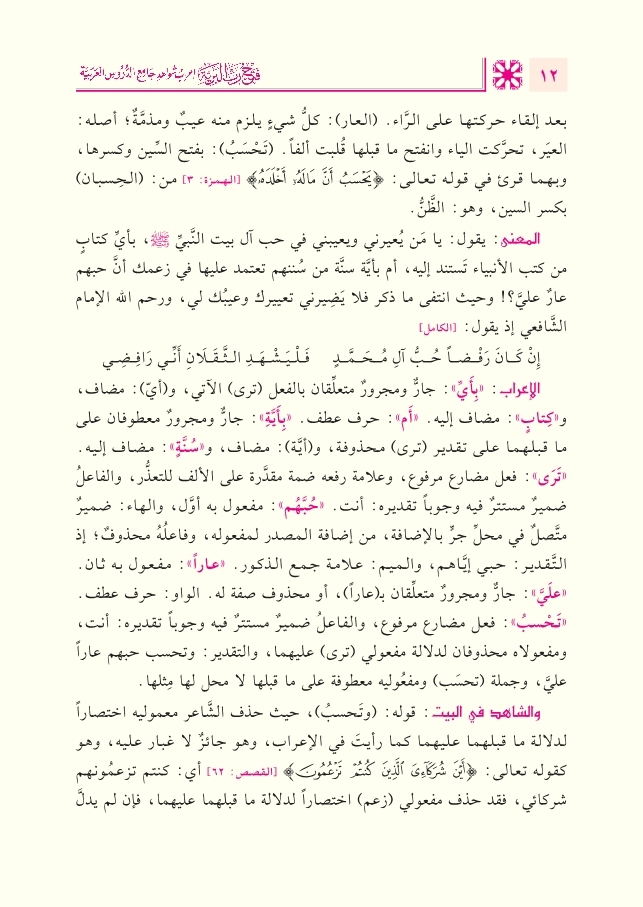 ١٢
فتح رب البرية إعراب شواهد جامع الدروس العربية
بعد إلقاء حركتها على الرَّاء. (العار): كلُّ شيءٍ يلزم منه عيبٌ ومذمَّةٌ؛ أصله:
العيَر، تحرَّكت الياء وانفتح ما قبلها قُلبت ألفاً. (تَحْسَبُ): بفتح السِّين وكسرها،
وبهما قرئ في قوله تعالى: ﴿يَحْسَبُ أَنَّ مَالَهُۥٓ أَخْلَدَهُۥ﴾ [الهمزة: ٣] من: (الحِسبان)
بكسر السين، وهو: الظَّنُّ.
المعنى: يقول: يا مَن يُعيرني ويعيبني في حب آل بيت النَّبيِّ ﷺ، بأيِّ كتابٍ
من كتب الأنبياء تَستند إليه، أم بأيَّة سنَّة من سُننهم تعتمد عليها في زعمك أنَّ حبهم
عارٌ عليَّ؟! وحيث انتفى ما ذكر فلا يَضِيرني تعييرك وعيبُك لي، ورحم الله الإمام
الشَّافعي إذ يقول: [الكامل]
إِنْ كَـانَ رَفْـضـاً حُـبُّ آلِ مُـحَـمَّـدٍ فَـلْـيَـشْـهَـدِ الـثَّـقَـلَانِ أَنِّـي رَافِـضِـي
الإعراب: «بِأَيِّ»: جارٌّ ومجرورٌ متعلِّقان بالفعل (ترى) الآتي، و(أيّ): مضاف،
و«كِتابٍ»: مضاف إليه. «أَم»: حرف عطف. «بِأَيَّةِ»: جارٌّ ومجرورٌ معطوفان على
ما قبلهما على تقدير (ترى) محذوفة، و(أيَّة): مضاف، و«سُنَّةٍ»: مضاف إليه.
«تَرَى»: فعل مضارع مرفوع، وعلامة رفعه ضمة مقدَّرة على الألف للتعذُّر، والفاعلُ
ضميرٌ مستترٌ فيه وجوباً تقديره: أنت. «حُبَّهُم»: مفعول به أوَّل، والهاء: ضميرٌ
متَّصلٌ في محلِّ جرٍّ بالإضافة، من إضافة المصدر لمفعوله، وفاعلُهُ محذوفٌ؛ إذ
التَّقدير: حبي إيَّاهـم، والميم: علامة جمع الذكور. «عاراً»: مفعول به ثان.
«علَيَّ»: جارٌّ ومجرورٌ متعلِّقان بـ(عاراً)، أو محذوف صفة له. الواو: حرف عطف.
«تَحْسبُ»: فعل مضارع مرفوع، والفاعلُ ضميرٌ مستترٌ فيه وجوباً تقديره: أنت،
ومفعولاه محذوفان لدلالة مفعولي (ترى) عليهما، والتقدير: وتحسب حبهم عاراً
عليَّ، وجملة (تحسَب) ومفعُوليه معطوفة على ما قبلها لا محل لها مِثلها.
والشاهد في البيت: قوله: (وتَحسبُ)، حيث حذف الشَّاعر معموليه اختصاراً
لدلالة ما قبلهما عليهما كما رأيتَ في الإعراب، وهو جائزٌ لا غبار عليه، وهو
كقوله تعالى: ﴿أَيْنَ شُرَكَآءِىَ ٱلَّذِينَ كُنتُمْ تَزْعُمُونَ﴾ [القصص: ٦٢] أي: كنتم تزعمُونهم
شركائي، فقد حذف مفعولي (زعم) اختصاراً لدلالة ما قبلهما عليهما، فإن لم يدلَّ